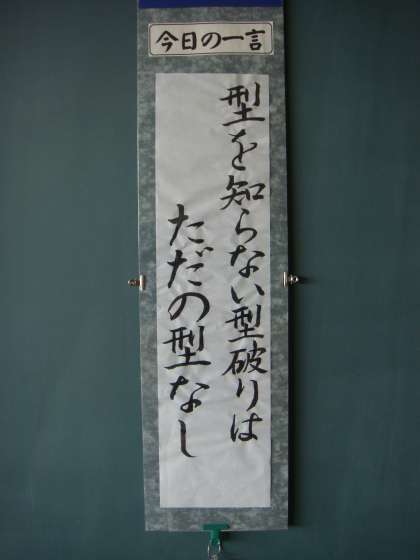 今日の一言
型を知らない型破りは
ただの型なし